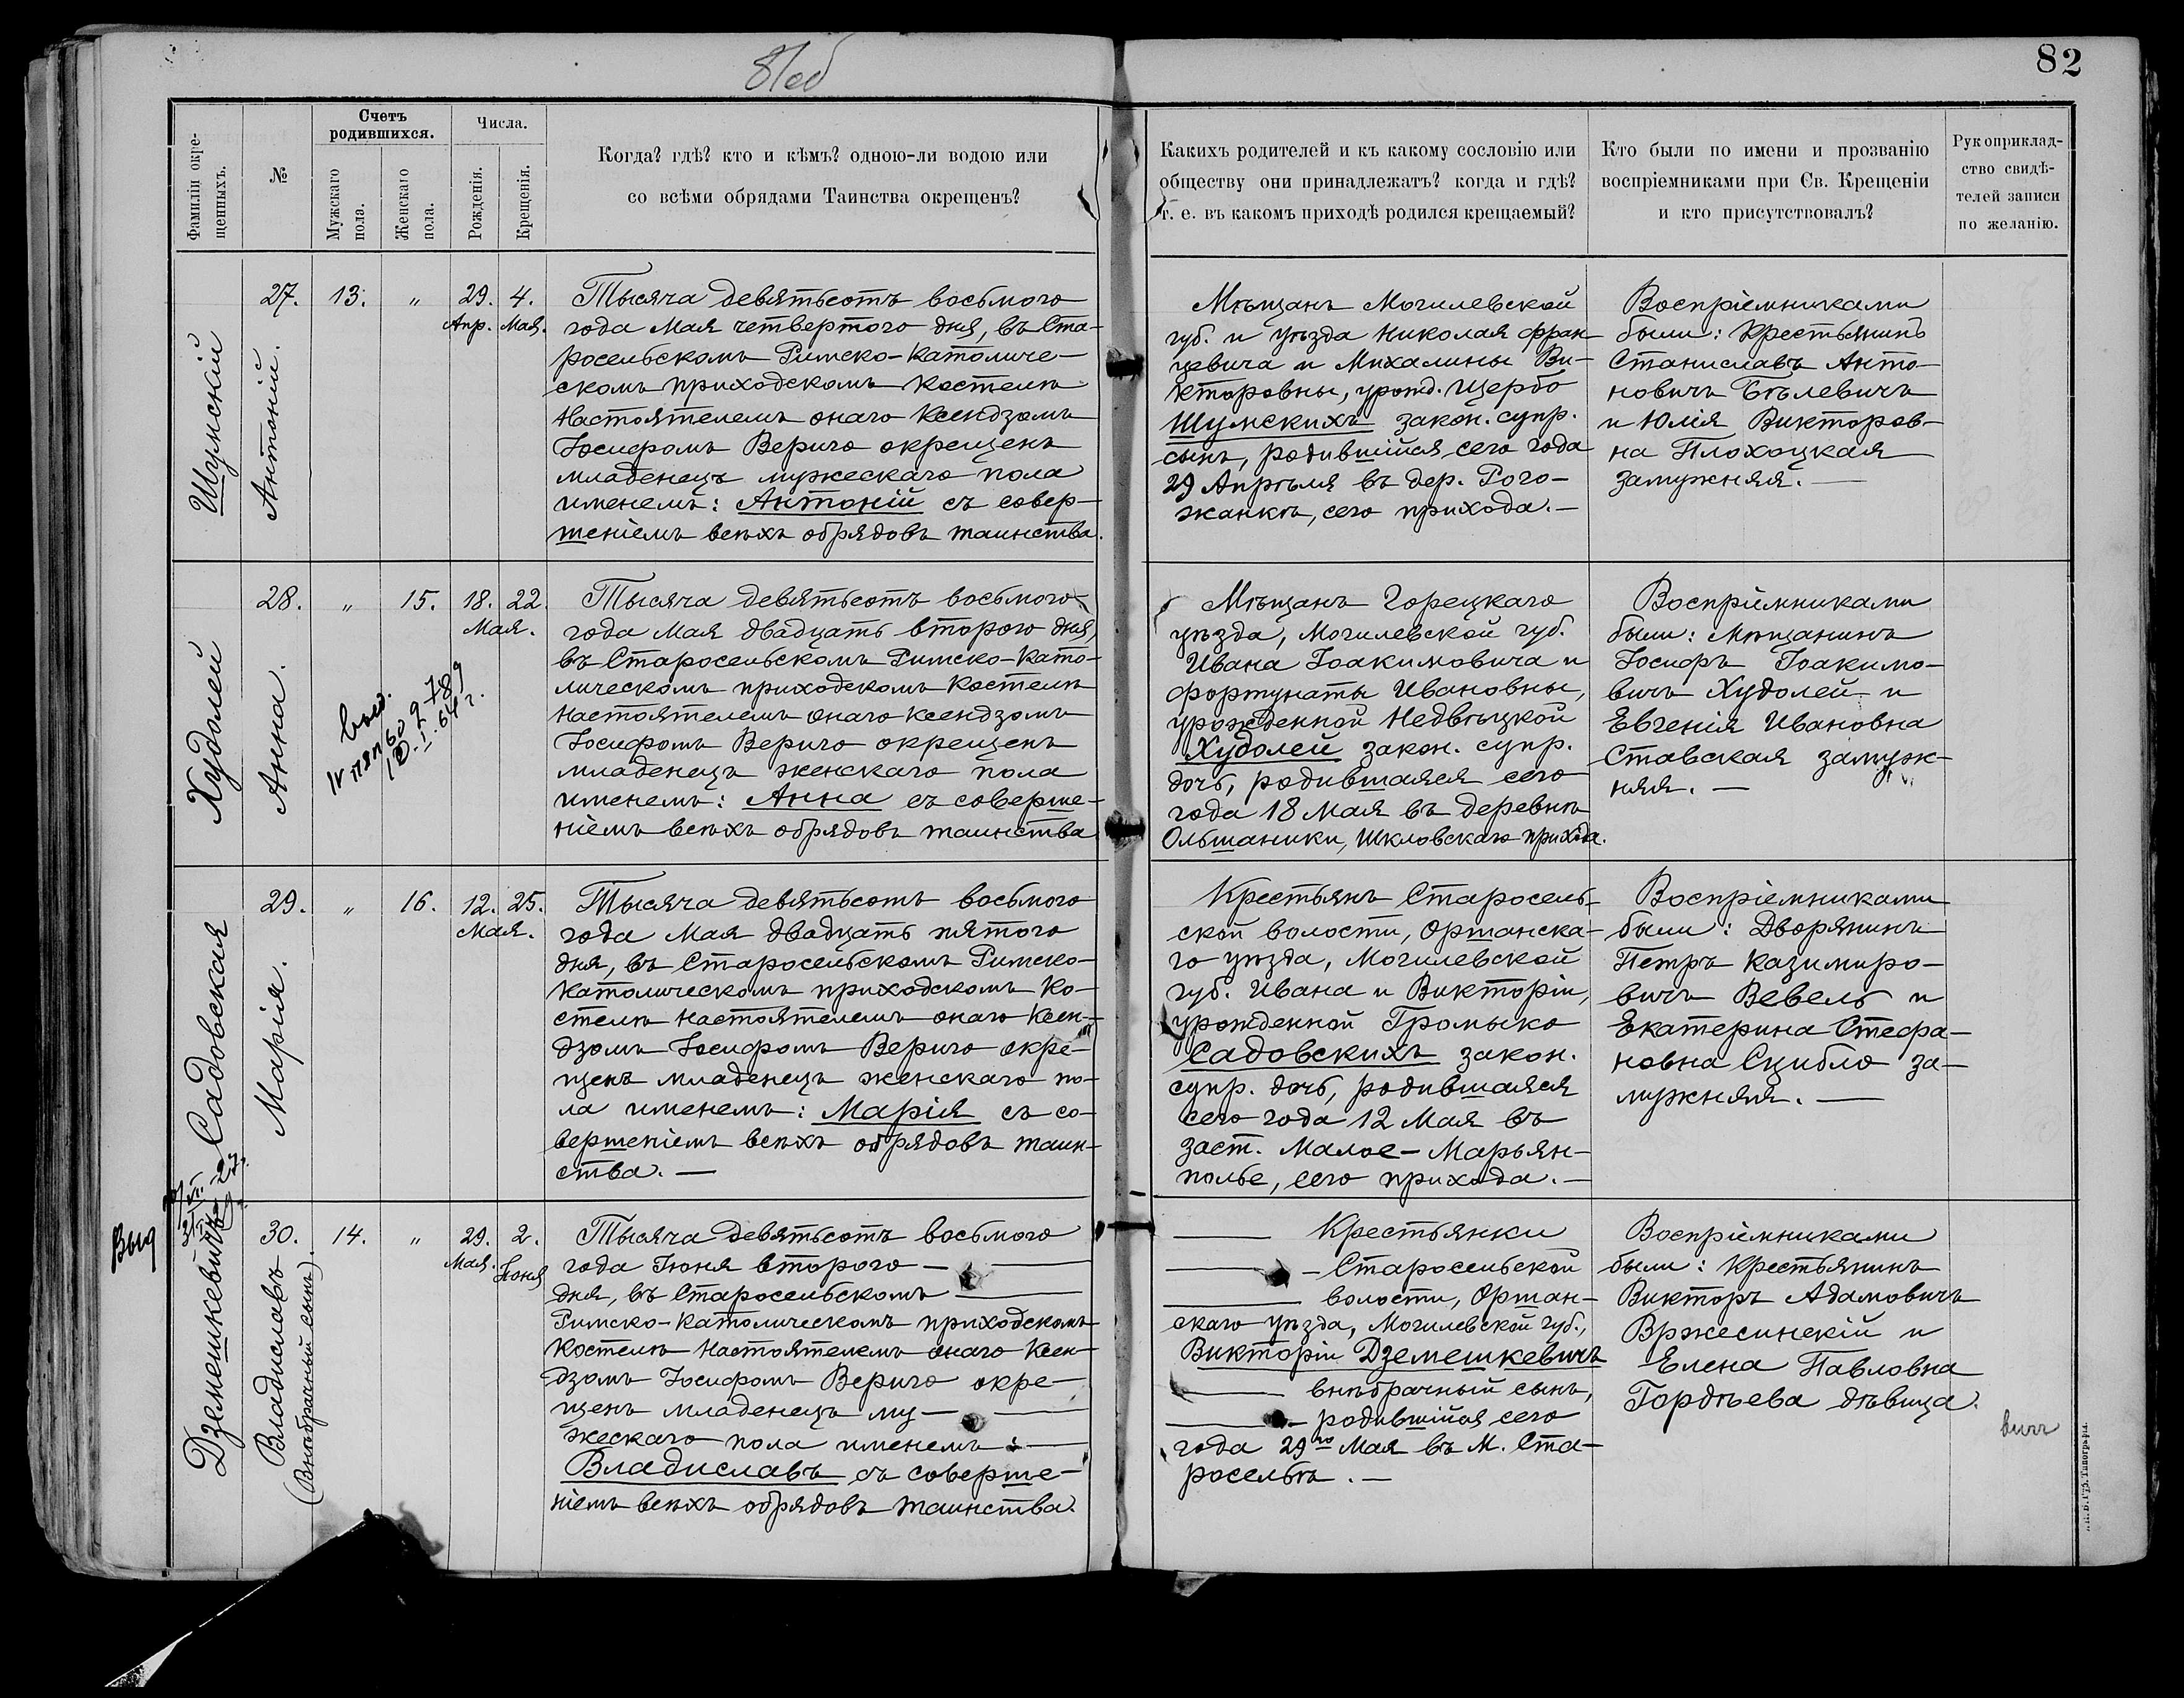 81об
82
Фамиліи окре-
щенныхъ.
№
Счетъ
родившихся.
Мужскаго
пола.
Женскаго
пола.
Числа.
Рожденія.
Крещенія.
Когда? гдѣ? кто и кѣмъ? одною-ли водою или
со всѣми обрядами Таинства окрещенъ?
Какихъ родителей и къ какому сословію или
обществу они принадлежатъ? когда и гдѣ?
т. е. въ какомъ приходѣ родился крещаемый?
Кто были по имени и прозванію
воспріемниками при Св. Крещеніи
и кто присутствовалъ?
Рукоприклад-
ство свидѣ-
телей записи
по желанію.
Шумскій
27.
Антоній.
13.
"
29.
Апр.
4.
Мая.
Тысяча девятьсотъ восьмого
года Мая четвертого дня, въ Ста-
росельскомъ Римско-Католиче-
скомъ приходскомъ Костелѣ
Настоятелемъ онаго Ксендзомъ
Іосифомъ Верыго окрещенъ
младенецъ мужескаго пола
именемъ: Антоній съ совер-
шеніемъ всѣхъ обрядовъ таинства.
Мѣщанъ Могилевской
губ. и уѣзда Николая Фран-
цевича и Михалины Ви-
кторовны, урожд. Щербо
Шумскихъ закон. супр.
сынъ, родившійся сего года
29 Апрѣля въ дер. Рого-
жанкѣ, сего прихода.—
Воспріемниками
были: Крестьянинъ
Станиславъ Анто-
новичъ Бѣлевичъ
и Юлія Викторов-
на Плохоцкая
замужняя.—
Худолей
28.
Анна.
"
15.
18. 22.
Мая.
Тысяча девятьсотъ восьмого
года Мая двадцать второго дня,
въ Старосельскомъ Римско-Като-
лическомъ приходскомъ Костелѣ
Настоятелемъ онаго Ксендзомъ
Іосифомъ Верыго окрещенъ
младенецъ женскаго пола
именемъ: Анна съ соверше-
ніемъ всѣхъ обрядовъ таинства
Мѣщанъ Горецкаго
уѣзда, Могилевской губ.
Ивана Іоакимовича и
Фортунаты Ивановны,
урожденной Недвѣцкой
Худолей закон. супр.
дочь, родившаяся сего
года 18 Мая въ деревнѣ
Ольшаники, Шкловскаго прихода.
Воспріемниками
были: Мѣщанинъ
Іосифъ Іоакимо-
вичъ Худолей и
Евгенія Ивановна
Ставская замуж-
няя.—
Садовская
29.
Марія.
"
16.
12. 25.
Мая.
Тысяча девятьсотъ восьмого
года Мая двадцать пятого
дня, въ Старосельскомъ Римско-
Католическомъ приходскомъ Ко-
стелѣ Настоятелемъ онаго Ксен-
дзомъ Іосифомъ Верыго окре-
щенъ младенецъ женскаго по-
ла именемъ: Марія съ со-
вершеніемъ всѣхъ обрядовъ таин-
ства.—
Крестьянъ Старосель-
ской волости, Оршанска-
го уѣзда, Могилевской
губ. Ивана и Викторіи,
урожденной Громыко
Садовскихъ закон.
супр. дочь, родившаяся
сего года 12 Мая въ
заст. Малое-Марьян-
полье, сего прихода.—
Воспріемниками
были: Дворянинъ
Петръ Казимиро-
вичъ Вевель и
Екатерина Стефа-
новна Сцибло за-
мужняя.—
Выд
Дземешкевичъ
30.
Владиславъ
(внѣбрачный сынъ).
14.
"
29.
Мая.
2.
Іюня
Тысяча девятьсотъ восьмого
года Іюня второго —
дня, въ Старосельскомъ —
Римско-Католическомъ приходскомъ
Костелѣ Настоятелемъ онаго Ксен-
дзомъ Іосифомъ Верыго окре-
щенъ младенецъ му-
жескаго пола именемъ: —
Владиславъ съ соверше-
ніемъ всѣхъ обрядовъ таинства.
— Крестьянки
— Старосельской
— волости, Оршан-
скаго уѣзда, Могилевской губ.,
Викторіи Дземешкевичъ
— внѣбрачный сынъ,
— родившійся сего
года 29го Мая въ М. Ста-
росельѣ.—
Воспріемниками
были: Крестьянинъ
Викторъ Адамовичъ
Вржесинскій и
Елена Павловна
Гордѣева дѣвица.